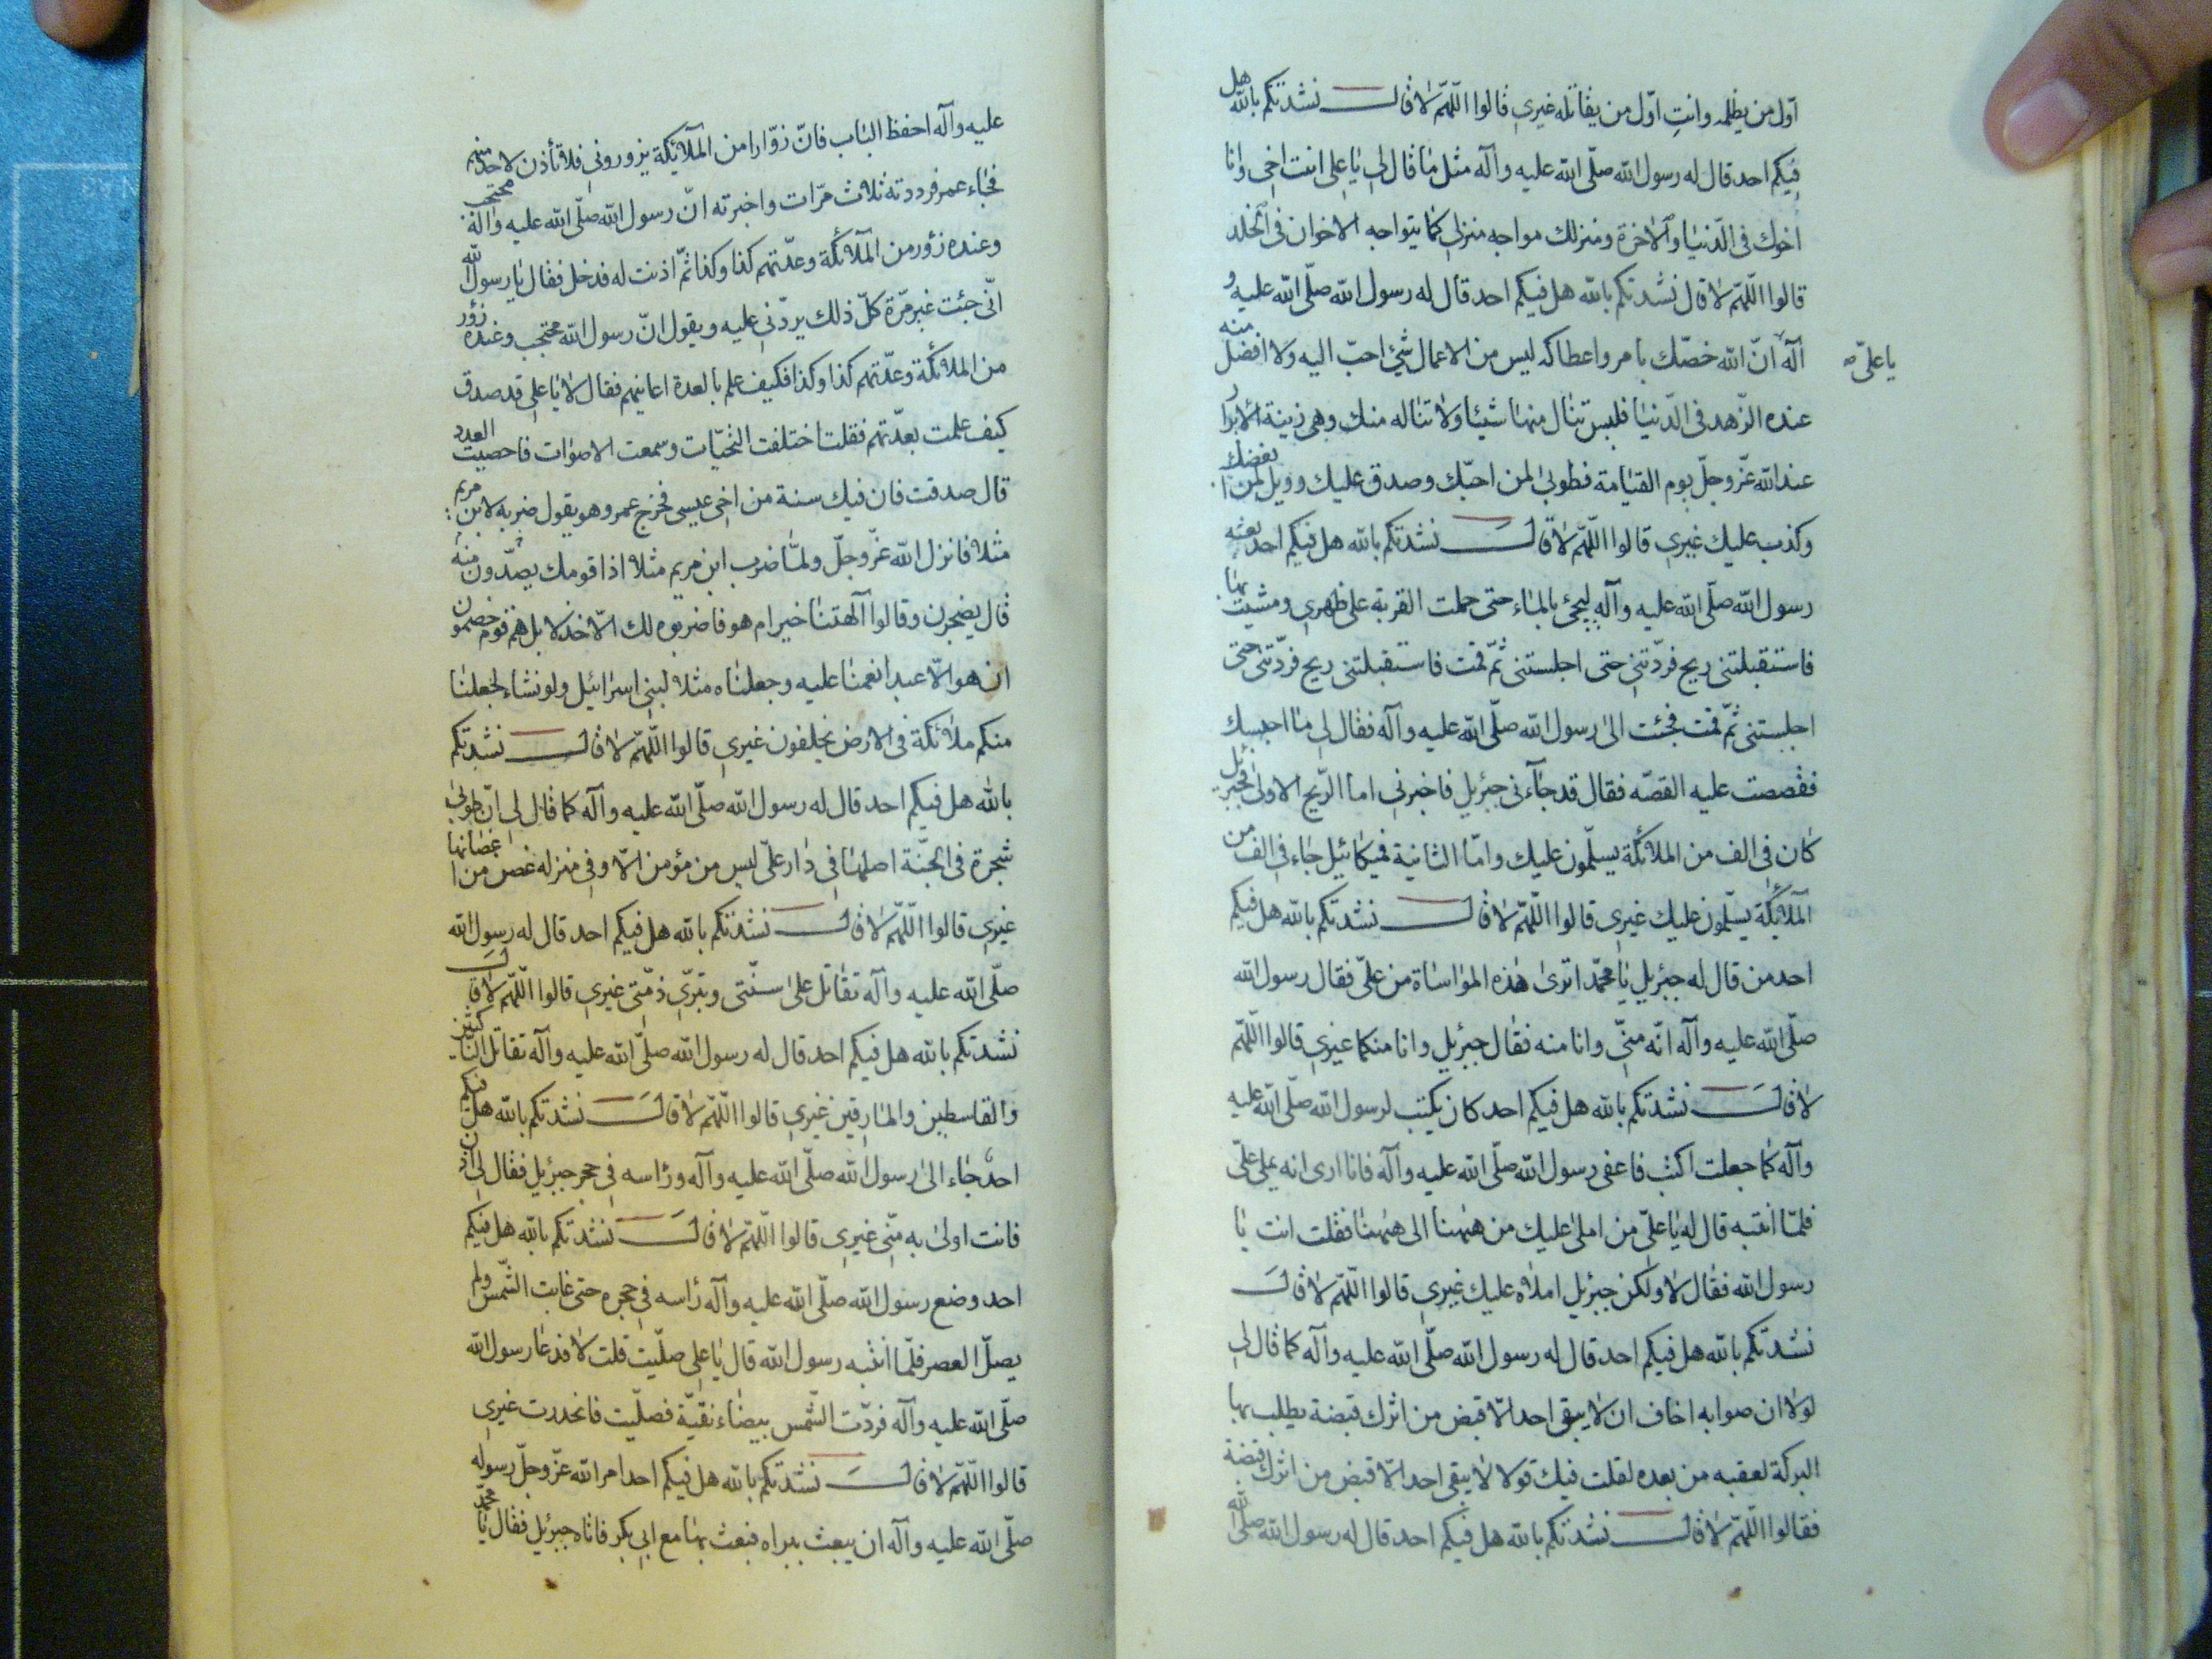 اوّل من يظلمه وانت اوّل من يقاتله غيرى قالوا اللّهمّ لا قال نشدتكم بالله هل
فيكم احد قال له رسول الله صلّى الله عليه وآله مثل ما قال لى يا على انت اخى وانا
اخوك فى الدّنيا والآخرة ومنزلك مواجه منزلى كما يتواجه الاخوان فى الخلد
قالوا اللّهمّ لا قال نشدتكم بالله هل فيكم احد قال له رسول الله صلّى الله عليه و
آله انّ الله خصّك بامر واعطاكه ليس من الاعمال شئ احبّ اليه ولا افضل منه
يا علىّ صه
عنده الزّهد فى الدّنيا فليس تنال منها شيئا ولا تناله منك وهى زينة الابرار
عند الله عزّ وجلّ يوم القيامة فطوبى لمن احبّك وصدق عليك وويل لمن ابغضك
وكذب عليك غيرى قالوا اللّهمّ لا قال نشدتكم بالله هل فيكم احد بعثه
رسول الله صلّى الله عليه وآله ليجئ بالماء حتى حملت القربة على ظهرى ومشيت بها
فاستقبلتنى ريح فردّتنى حتى اجلستنى ثمّ قمت فاستقبلتنى ريح فردّتنى حتى
اجلستنى ثمّ قمت فجئت الى رسول الله صلّى الله عليه وآله فقال لى ما احبسك
فقصصت عليه القصّه فقال قد جآءنى جبرئيل فاخبرنى اما الرّيح الاولى فجبرئيل
كان فى الف من الملائكة يسلّمون عليك وامّا الثانية فميكائيل جاء فى الف من
الملآئكة يسلّمون عليك غيرى قالوا اللّهمّ لا قال نشدتكم بالله هل فيكم
احد من قال له جبرئيل يا محمّد اترى هذه المواساة من علىّ فقال رسول الله
صلّى الله عليه وآله انّه منّى وانا منه فقال جبرئيل وانا منكما غيرى قالوا اللّهمّ
لا قال نشدتكم بالله هل فيكم احد كان يكتب لرسول الله صلّى الله عليه
وآله كما جعلت اكتب فاغفى رسول الله صلّى الله عليه وآله فانا ارى انه يملى علىّ
فلمّا انتبه قال له يا علىّ من املى عليك من هيهنا الى هيهنا فقلت انت يا
رسول الله فقال لا ولكن جبرئيل املاه عليك غيرى قالوا اللّهمّ لا قال
نشدتكم بالله هل فيكم احد قال له رسول الله صلّى الله عليه وآله كما قال لى
لولا ان صوابه اخاف ان لا يبقى احد الّا قبض من اثرك قبضة يطلب بها
البركة لعقبه من بعده لقلت فيك قولا لا يبقى احد الّا قبض من اثرك قبضة
فقالوا اللّهمّ لا قال نشدتكم بالله هل فيكم احد قال له رسول الله صلّى الله
عليه وآله احفظ الباب فانّ زوّارا من الملآئكة يزورونى فلا تأذن لاحد منهم
فجاء عمر فرددته ثلاث مرّات واخبرته انّ رسول الله صلّى الله عليه وآله محتجب
وعنده زؤر من الملآئكة وعدّتهم كذا وكذا ثمّ اذنت له فدخل فقال يا رسول الله
انّى جئت غير مرّة كلّ ذلك يردّنى عليه ويقول انّ رسول الله محتجب وعنده زؤر
من الملائكة وعدّتهم كذا وكذا فكيف علم بالعدة اعاينهم فقال لا يا على قد صدق
كيف علمت بعدّتهم فقلت اختلفت التحيّات وسمعت الاصوات فاحصيت العدد
قال صدقت فان فيك سنة من اخى عيسى فخرج عمر وهو يقول ضربه لابن مريم
مثلا فانزل الله عزّ وجلّ ولمّا ضرب ابن مريم مثلا اذا قومك منه يصدّون
قال يضجون وقالوا آلهتنا خير ام هو ما ضربوه لك الّا جدلا بل هم قوم خصمون
ان هو الّا عبد انعمنا عليه وجعلناه مثلا لبنى اسرائيل ولو نشاء لجعلنا
منكم ملائكة فى الارض يخلفون غيرى قالوا اللّهمّ لا قال نشدتكم
بالله هل فيكم احد قال له رسول الله صلّى الله عليه وآله كما قال لى انّ طوبى
شجرة فى الجنّة اصلها فى دار علىّ ليس من مؤمن الّا وفى منزله غصن من اغصانها
غيرى قالوا اللّهمّ لا قال نشدتكم بالله هل فيكم احد قال له رسول الله
صلّى الله عليه وآله تقاتل على سنّتى وتبرّى ذمّتى غيرى قالوا اللّهمّ لا قال
نشدتكم بالله هل فيكم احد قال له رسول الله صلّى الله عليه وآله تقاتل الناكثين
والقاسطين والمارقين غيرى قالوا اللّهمّ لا قال نشدتكم بالله هل فيكم
احد جاء الى رسول الله صلّى الله عليه وآله ورأسه فى حجر جبرئيل فقال لى ادن
فانت اولى به منّى غيرى قالوا اللّهمّ لا قال نشدتكم بالله هل فيكم
احد وضع رسول الله صلّى الله عليه وآله رأسه فى حجره حتى غابت الشّمس ولم
يصلّ العصر فلمّا انتبه رسول الله قال يا على صلّيت قلت لا فدعا رسول الله
صلّى الله عليه وآله فردّت الشّمس بيضاء نقيّة فصلّيت فانحدرت غيرى
قالوا اللّهمّ لا قال نشدتكم بالله هل فيكم احد امر الله عزّ وجلّ رسوله
صلّى الله عليه وآله ان يبعث ببراه فبعث بها مع ابى بكر فاتاه جبرئيل فقال يا محمّد